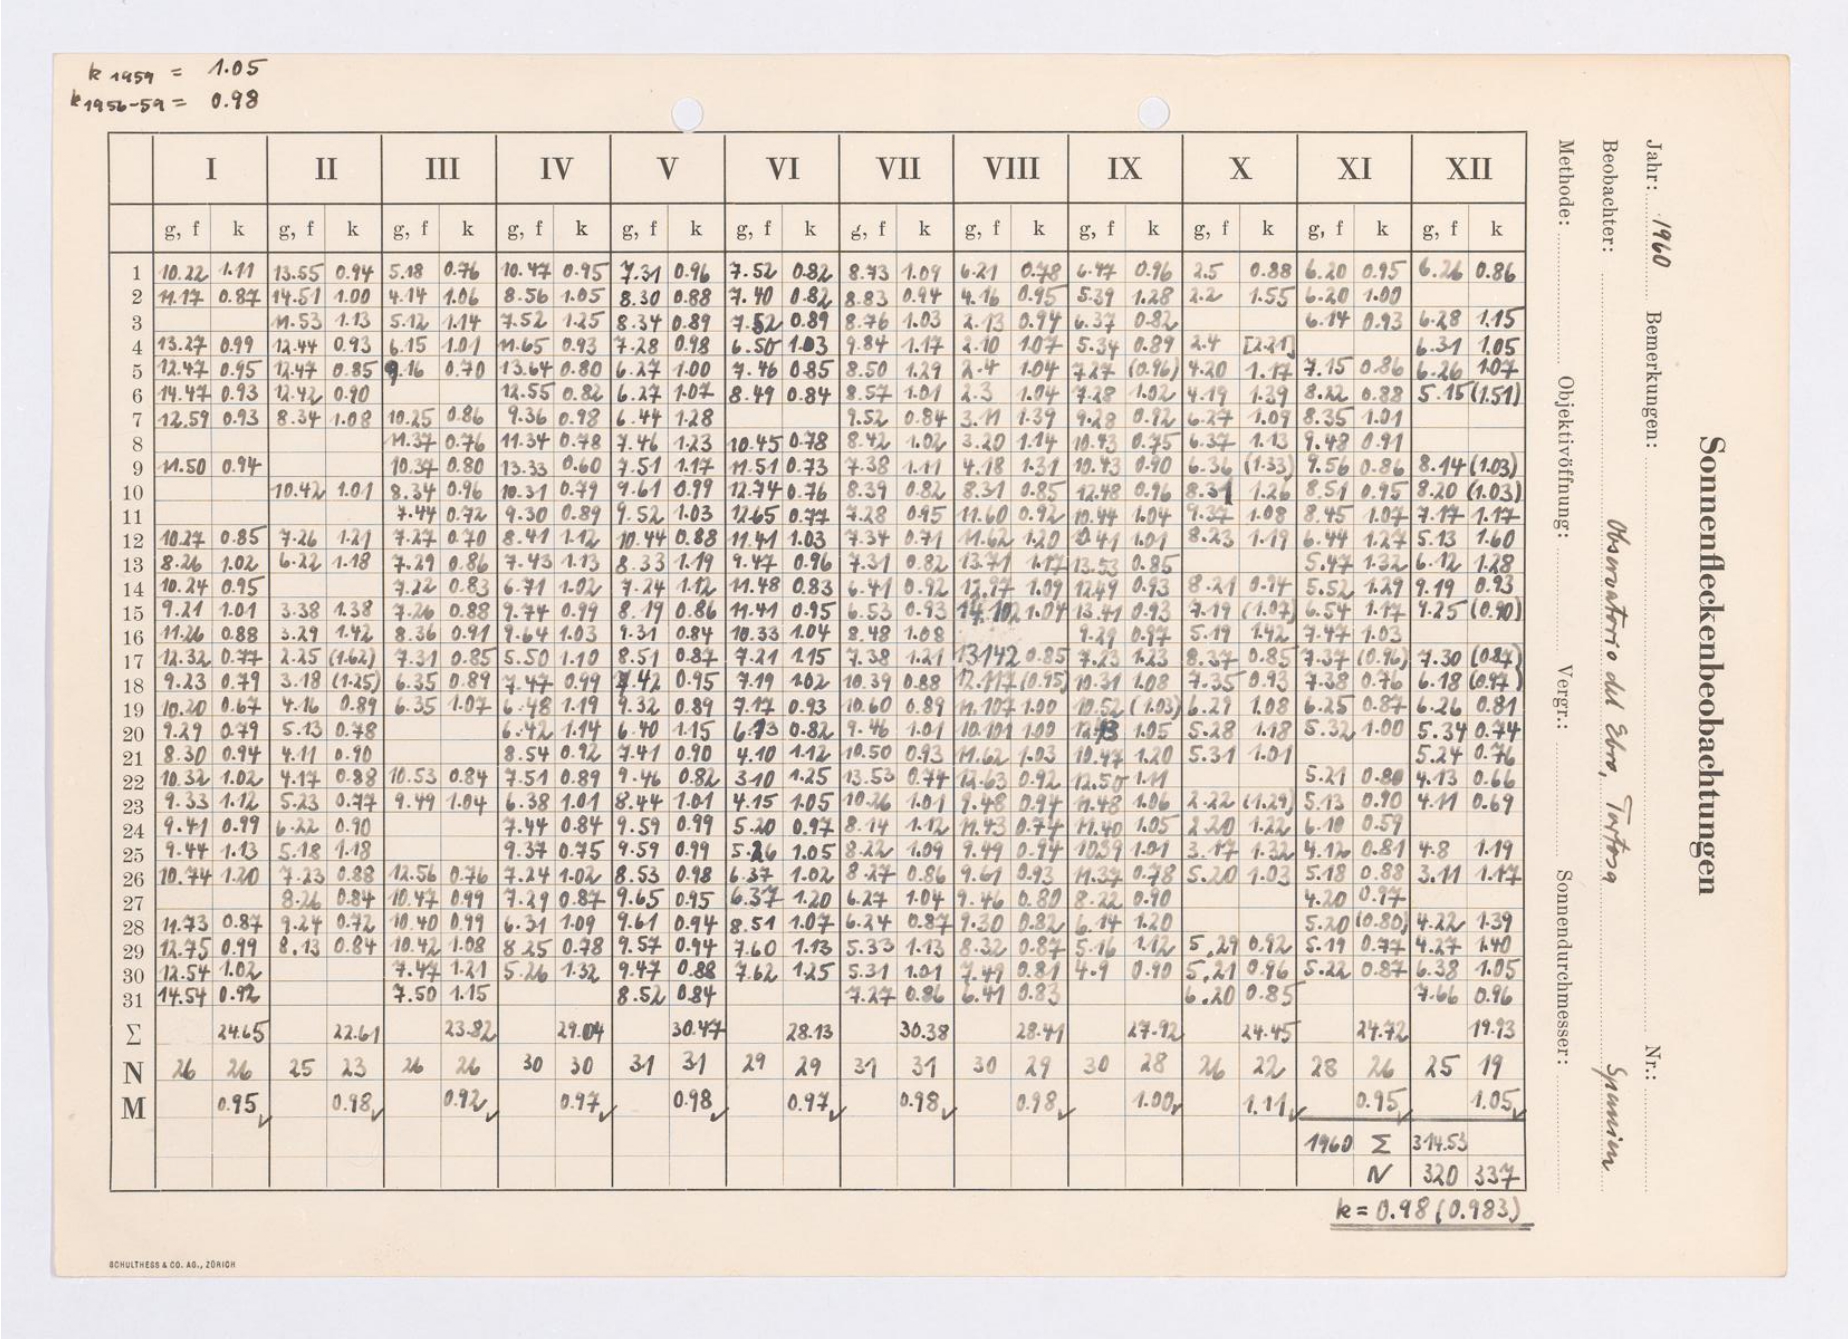 k 1959 = 1.05
k 1956-59 = 0.98
I II III IV V VI VII VIII IX X XI XII
g, f k g, f k g, f k g, f k g, f k g, f k g, f k g, f k g, f k g, f k g, f k g, f k
1 10.22 1.11 13.55 0.94 5.18 0.76 10.47 0.95 7.31 0.96 7.52 0.82 8.73 1.09 6.21 0.78 6.47 0.96 2.5 0.88 6.20 0.95 6.26 0.86
2 11.17 0.87 14.51 1.00 4.14 1.06 8.56 1.05 8.30 0.88 7.40 0.82 8.83 0.94 4.16 0.95 5.39 1.28 2.2 1.55 6.20 1.00
3 11.53 1.13 5.12 1.14 7.52 1.25 8.34 0.89 7.52 0.89 8.76 1.03 2.13 0.94 6.37 0.82 6.14 0.93 6.28 1.15
4 13.27 0.99 12.44 0.93 6.15 1.01 11.65 0.93 7.28 0.98 6.50 1.03 9.84 1.17 2.10 1.07 5.34 0.89 2.4 [2.21] 6.31 1.05
5 12.47 0.95 12.47 0.85 9.16 0.70 13.64 0.80 6.27 1.00 7.46 0.85 8.50 1.29 2.4 1.04 7.27 (0.96) 4.20 1.17 7.15 0.86 6.26 1.07
6 14.47 0.93 12.42 0.90 12.55 0.82 6.27 1.07 8.49 0.84 8.57 1.01 2.3 1.04 7.28 1.02 4.19 1.39 8.22 0.88 5.15 (1.51)
7 12.59 0.93 8.34 1.08 10.25 0.86 9.36 0.98 6.44 1.28 9.52 0.84 3.11 1.39 9.28 0.92 6.27 1.09 8.35 1.01
8 11.37 0.76 11.34 0.78 7.46 1.23 10.45 0.78 8.42 1.02 3.20 1.14 10.43 0.75 6.37 1.13 9.48 0.91
9 11.50 0.94 10.37 0.80 13.33 0.60 7.51 1.17 11.51 0.73 7.38 1.11 4.18 1.31 10.43 0.90 6.36 (1.33) 9.56 0.86 8.14 (1.03)
10 10.42 1.01 8.34 0.96 10.31 0.79 9.61 0.99 12.74 0.76 8.39 0.82 8.31 0.85 12.48 0.96 8.31 1.26 8.51 0.95 8.20 (1.03)
11 7.44 0.72 9.30 0.89 9.52 1.03 12.65 0.77 7.28 0.95 11.60 0.92 10.44 1.04 9.37 1.08 8.45 1.07 7.17 1.17
12 10.27 0.85 7.26 1.21 7.27 0.70 8.41 1.12 10.44 0.88 11.41 1.03 7.34 0.71 11.62 1.20 1.01 8.23 1.19 6.44 1.27 5.13 1.60
13 8.26 1.02 6.22 1.18 7.29 0.86 7.43 1.13 8.33 1.19 9.47 0.96 7.31 0.82 13.71 1.17 13.53 0.85 5.47 1.32 6.12 1.28
14 10.24 0.95 7.22 0.83 6.71 1.02 7.24 1.12 11.48 0.83 6.41 0.92 12.97 1.09 12.49 0.93 8.21 0.94 5.52 1.29 9.19 0.93
15 9.21 1.01 3.38 1.38 7.26 0.88 9.74 0.99 8.19 0.86 11.41 0.95 6.53 0.93 14.102 1.04 13.41 0.93 7.19 (1.07) 6.54 1.17 9.25 (0.90)
16 11.26 0.88 3.29 1.42 8.36 0.91 9.64 1.03 9.31 0.84 10.33 1.04 8.48 1.08 9.29 0.97 5.19 1.42 7.47 1.03
17 12.32 0.77 2.25 (1.62) 7.31 0.85 5.50 1.10 8.51 0.87 7.21 1.15 7.38 1.21 13.142 0.85 7.23 1.23 8.37 0.85 7.37 (0.96) 7.30 (0.87)
18 9.23 0.79 3.18 (1.25) 6.35 0.89 7.47 0.99 7.42 0.95 7.19 1.02 10.39 0.88 12.117 (0.95) 10.31 1.08 7.35 0.93 7.38 0.76 6.18 (0.97)
19 10.20 0.67 4.16 0.89 6.35 1.07 6.48 1.19 9.32 0.89 7.17 0.93 10.60 0.89 11.107 1.00 10.52 (1.03) 6.29 1.08 6.25 0.87 6.26 0.81
20 9.29 0.79 5.13 0.78 6.42 1.14 6.40 1.15 6.13 0.82 9.46 1.01 10.101 1.00 1.05 5.28 1.18 5.32 1.00 5.34 0.74
21 8.30 0.94 4.11 0.90 8.54 0.92 7.41 0.90 4.10 1.12 10.50 0.93 11.62 1.03 10.47 1.20 5.31 1.01 5.24 0.76
22 10.32 1.02 4.17 0.88 10.53 0.84 7.51 0.89 9.46 0.82 3.10 1.25 13.53 0.74 12.63 0.92 12.50 1.11 5.21 0.80 4.13 0.66
23 9.33 1.12 5.23 0.77 9.49 1.04 6.38 1.01 8.44 1.01 4.15 1.05 10.26 1.01 9.48 0.94 11.48 1.06 2.22 (1.29) 5.13 0.90 4.11 0.69
24 9.41 0.99 6.22 0.90 7.44 0.84 9.59 0.99 5.20 0.97 8.14 1.12 11.43 0.74 11.40 1.05 2.20 1.22 6.10 0.59
25 9.44 1.13 5.18 1.18 9.37 0.75 9.59 0.99 5.26 1.05 8.22 1.09 9.49 0.94 10.39 1.01 3.17 1.32 4.12 0.81 4.8 1.19
26 10.74 1.20 7.23 0.88 12.56 0.76 7.24 1.02 8.53 0.98 6.37 1.02 8.27 0.86 9.61 0.93 11.37 0.78 5.20 1.03 5.18 0.88 3.11 1.17
27 8.26 0.84 10.47 0.99 7.29 0.87 9.65 0.95 6.37 1.20 6.27 1.04 9.46 0.80 8.22 0.90 4.20 0.97
28 11.73 0.87 9.24 0.72 10.40 0.99 6.31 1.09 9.61 0.94 8.51 1.07 6.24 0.87 9.30 0.82 6.14 1.20 5.20 (0.80) 4.22 1.39
29 12.75 0.99 8.13 0.84 10.42 1.08 8.25 0.78 9.57 0.94 7.60 1.13 5.33 1.13 8.32 0.87 5.16 1.12 5.29 0.92 5.19 0.77 4.27 1.40
30 12.54 1.02 7.47 1.21 5.26 1.32 9.47 0.88 7.62 1.25 5.31 1.01 7.49 0.81 4.9 0.90 5.21 0.96 5.22 0.87 6.38 1.05
31 14.54 0.92 7.50 1.15 8.52 0.84 7.27 0.86 6.41 0.83 6.20 0.85 7.66 0.96
Σ 24.65 22.61 23.82 29.04 30.47 28.13 30.38 28.41 27.92 24.45 24.72 19.93
N 26 26 25 23 26 26 30 30 31 31 29 29 31 31 30 29 30 28 26 22 28 26 25 19
M 0.95 0.98 0.92 0.97 0.98 0.97 0.98 0.98 1.00 1.11 0.95 1.05
1960 Σ 314.53
N 320 337
k = 0.98 (0.983)
SCHULTHESS & CO. AG., ZÜRICH
Sonnenfleckenbeobachtungen
Jahr: 1960 Bemerkungen: Nr.:
Beobachter: Observatorio del Ebro, Tortosa Spanien
Methode: Objektivöffnung: Vergr.: Sonnendurchmesser: